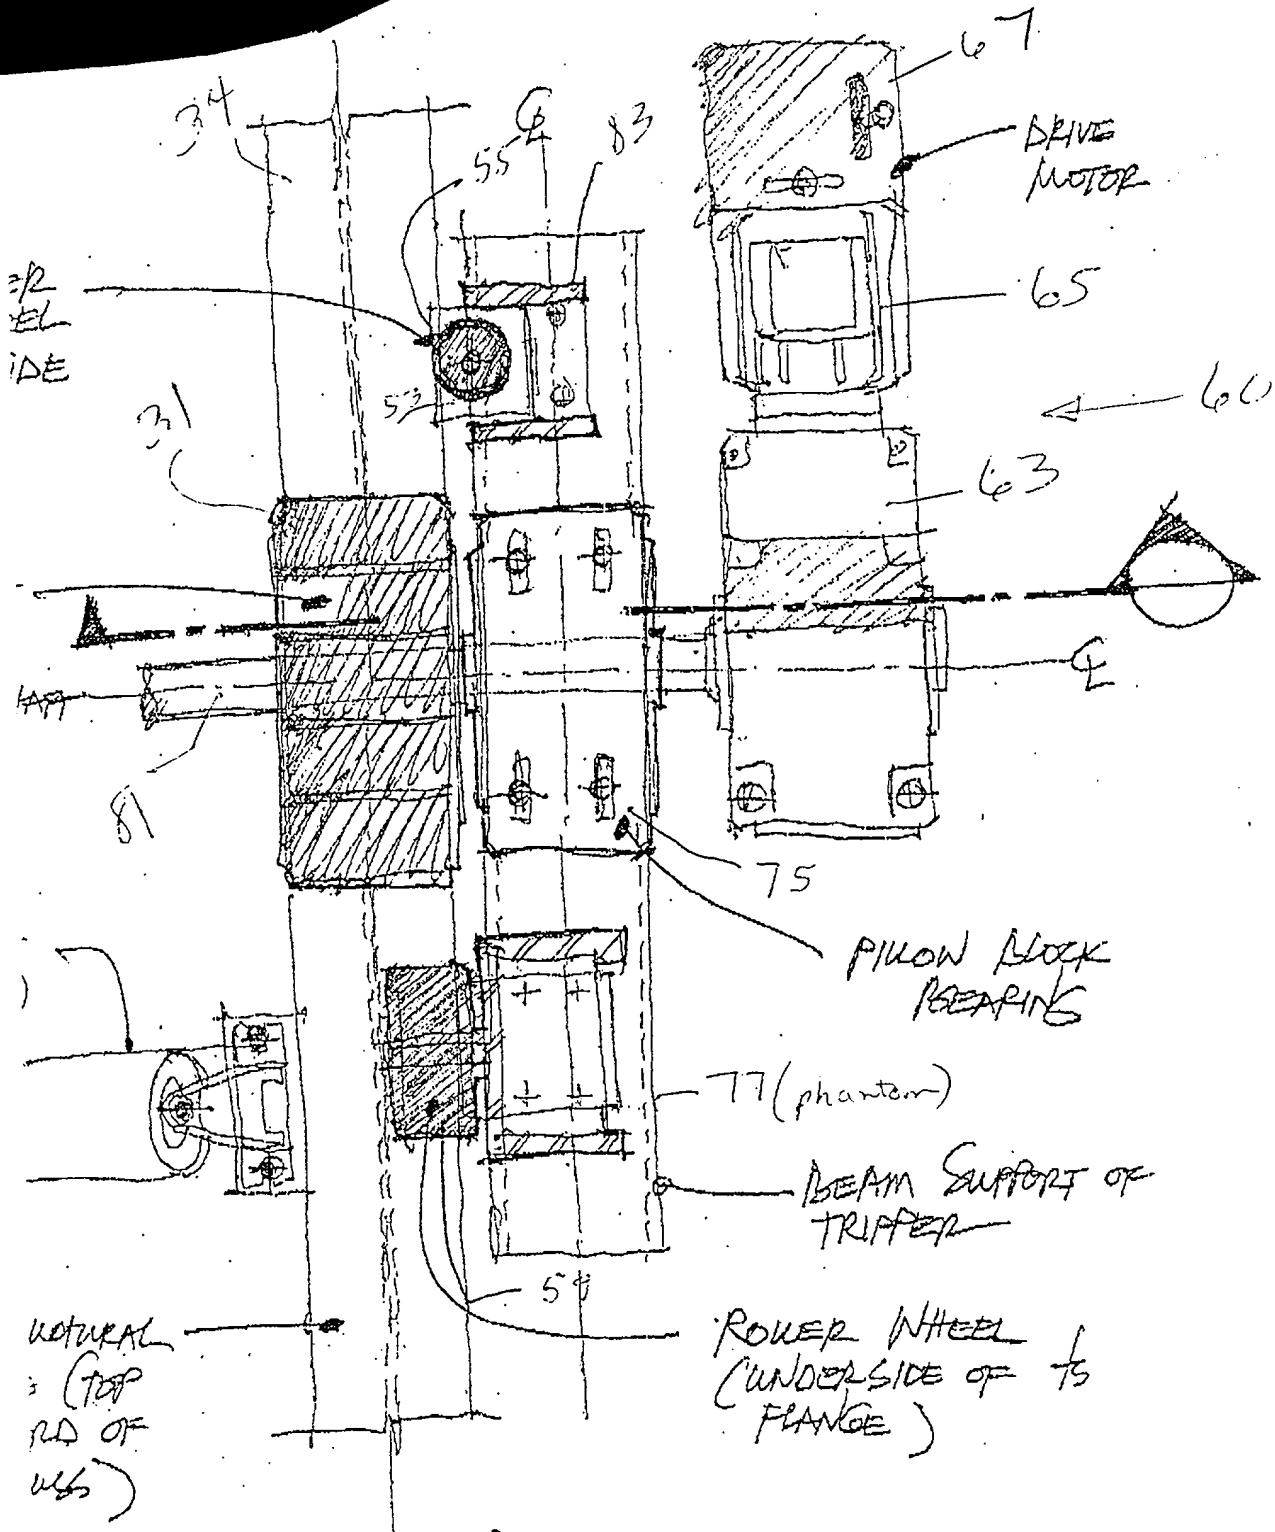 67
34
℄
83
55
DRIVE
MOTOR
65
ER
EL
IDE
53
60
31
63
℄
81
75
PILLOW BLOCK
BEARING
77 (phantom)
BEAM SUPPORT OF
TRIPPER
59
ROLLER WHEEL
(UNDERSIDE OF
FLANGE)
(TOP
RD OF